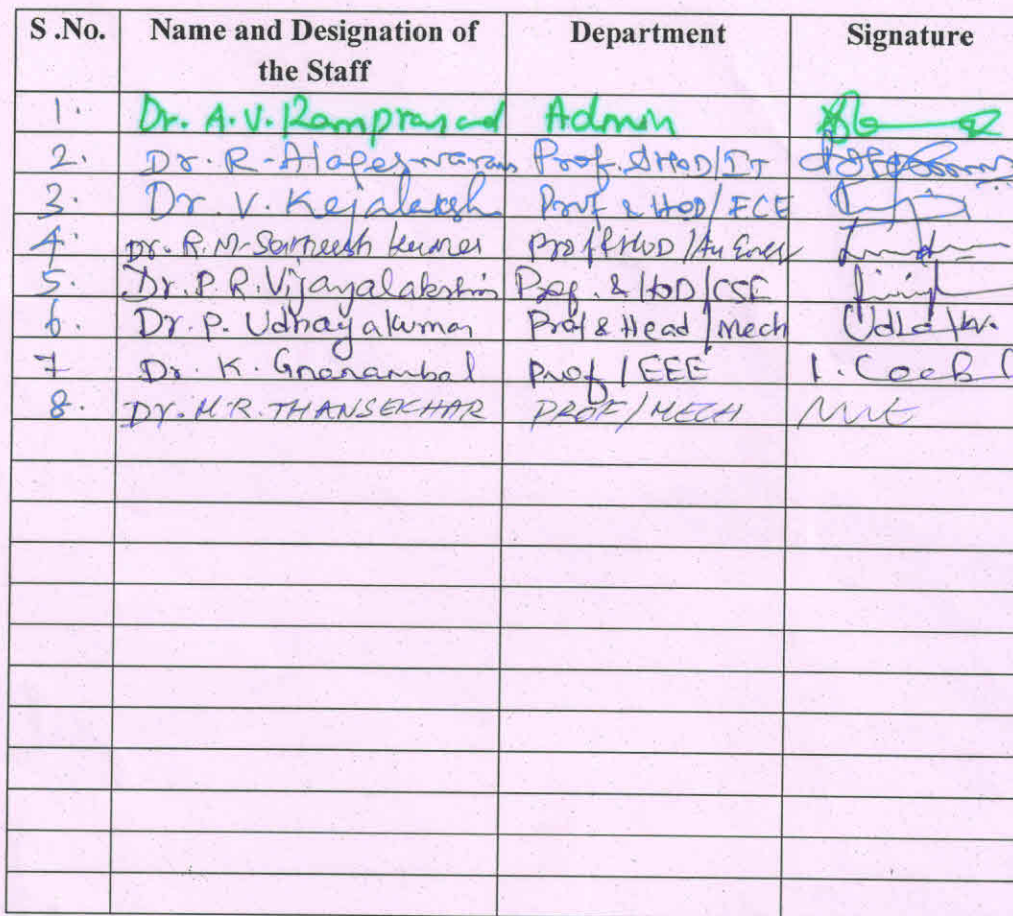 S .No. Name and Designation of the Staff Department Signature
1. Dr. A.V. Ramprasad Admin
2. Dr. R. Alageswaran Prof. & HOD/IT
3. Dr. V. Kejalaksh Prof & HOD/ECE
4. Dr. R.M. Satheesh Kumar Prof & HOD /
5. Dr. P.R. Vijayalakshmi Prof. & HOD/CSE
6. Dr. P. Udhayakumar Prof & Head / Mech
7 Dr. K. Gnanambal Prof / EEE
8. Dr. M.R. THANSEKHAR PROF/MECH